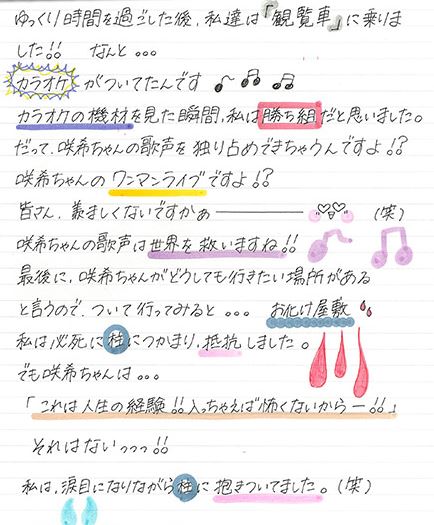 ゆっくり時間を過ごした後、私達は『観覧車』に乗りま
した!! なんと...
カラオケ がついてたんです
カラオケの機材を見た瞬間、私は勝ち組だと思いました。
だって、咲希ちゃんの歌声を独り占めできちゃうんですよ!?
咲希ちゃんのワンマンライブですよ!?
皆さん、羨ましくないですかぁ――― (笑)
咲希ちゃんの歌声は世界を救いますね!!
最後に、咲希ちゃんがどうしても行きたい場所がある
と言うので、ついて行ってみると... お化け屋敷
私は必死に柱につかまり、抵抗しました。
でも咲希ちゃんは...
「これは人生の経験!!入っちゃえば怖くないからー!!」
それはないっっっ!!
私は、涙目になりながら柱に抱きついてました。(笑)